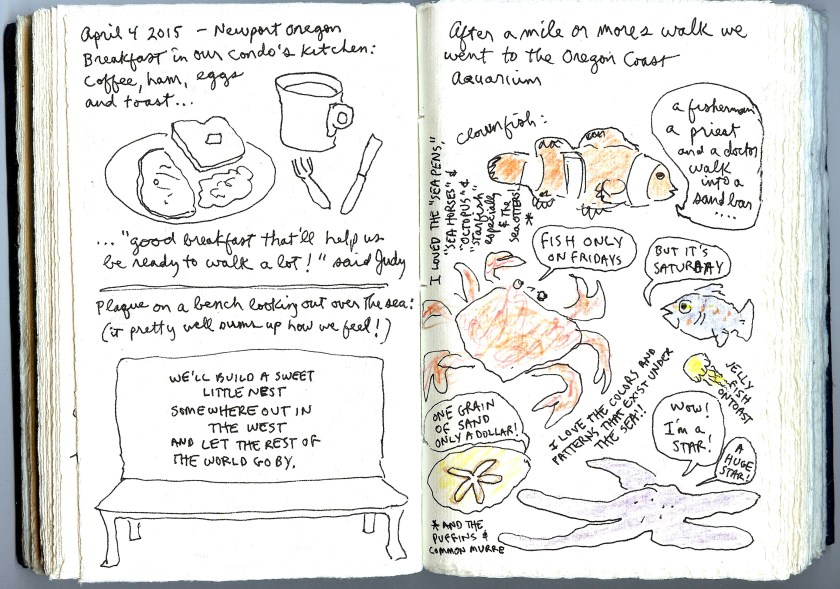 April 4 2015 - Newport Oregon
Breakfast in our condo's kitchen:
coffee, ham, eggs
and toast...
..."good breakfast that'll help us
be ready to walk a lot!" said Judy
Plaque on a bench looking out over the sea:
(it pretty well sums up how we feel!)
WE'LL BUILD A SWEET
LITTLE NEST
SOMEWHERE OUT IN
THE WEST
AND LET THE REST OF
THE WORLD GO BY.
After a mile or more's walk we
went to the Oregon Coast
Aquarium
clownfish:
a fisherman
a priest
and a doctor
walk
into a
sandbar
....
I LOVED THE "SEA PENS",
"SEA HORSES" &
"OCTOPUS" &
"starfish"
especially
& THE
SEA OTTERS!
*
FISH ONLY
ON FRIDAYS
BUT IT'S
SATURDAY
JELLY
FISH
ON TOAST
I LOVE THE COLORS AND
PATTERNS THAT EXIST UNDER
THE SEA!!
ONE GRAIN
OF SAND
ONLY A DOLLAR!
WOW!
I'm a
STAR!
A
HUGE
STAR!
* AND THE
PUFFINS &
COMMON MURRE